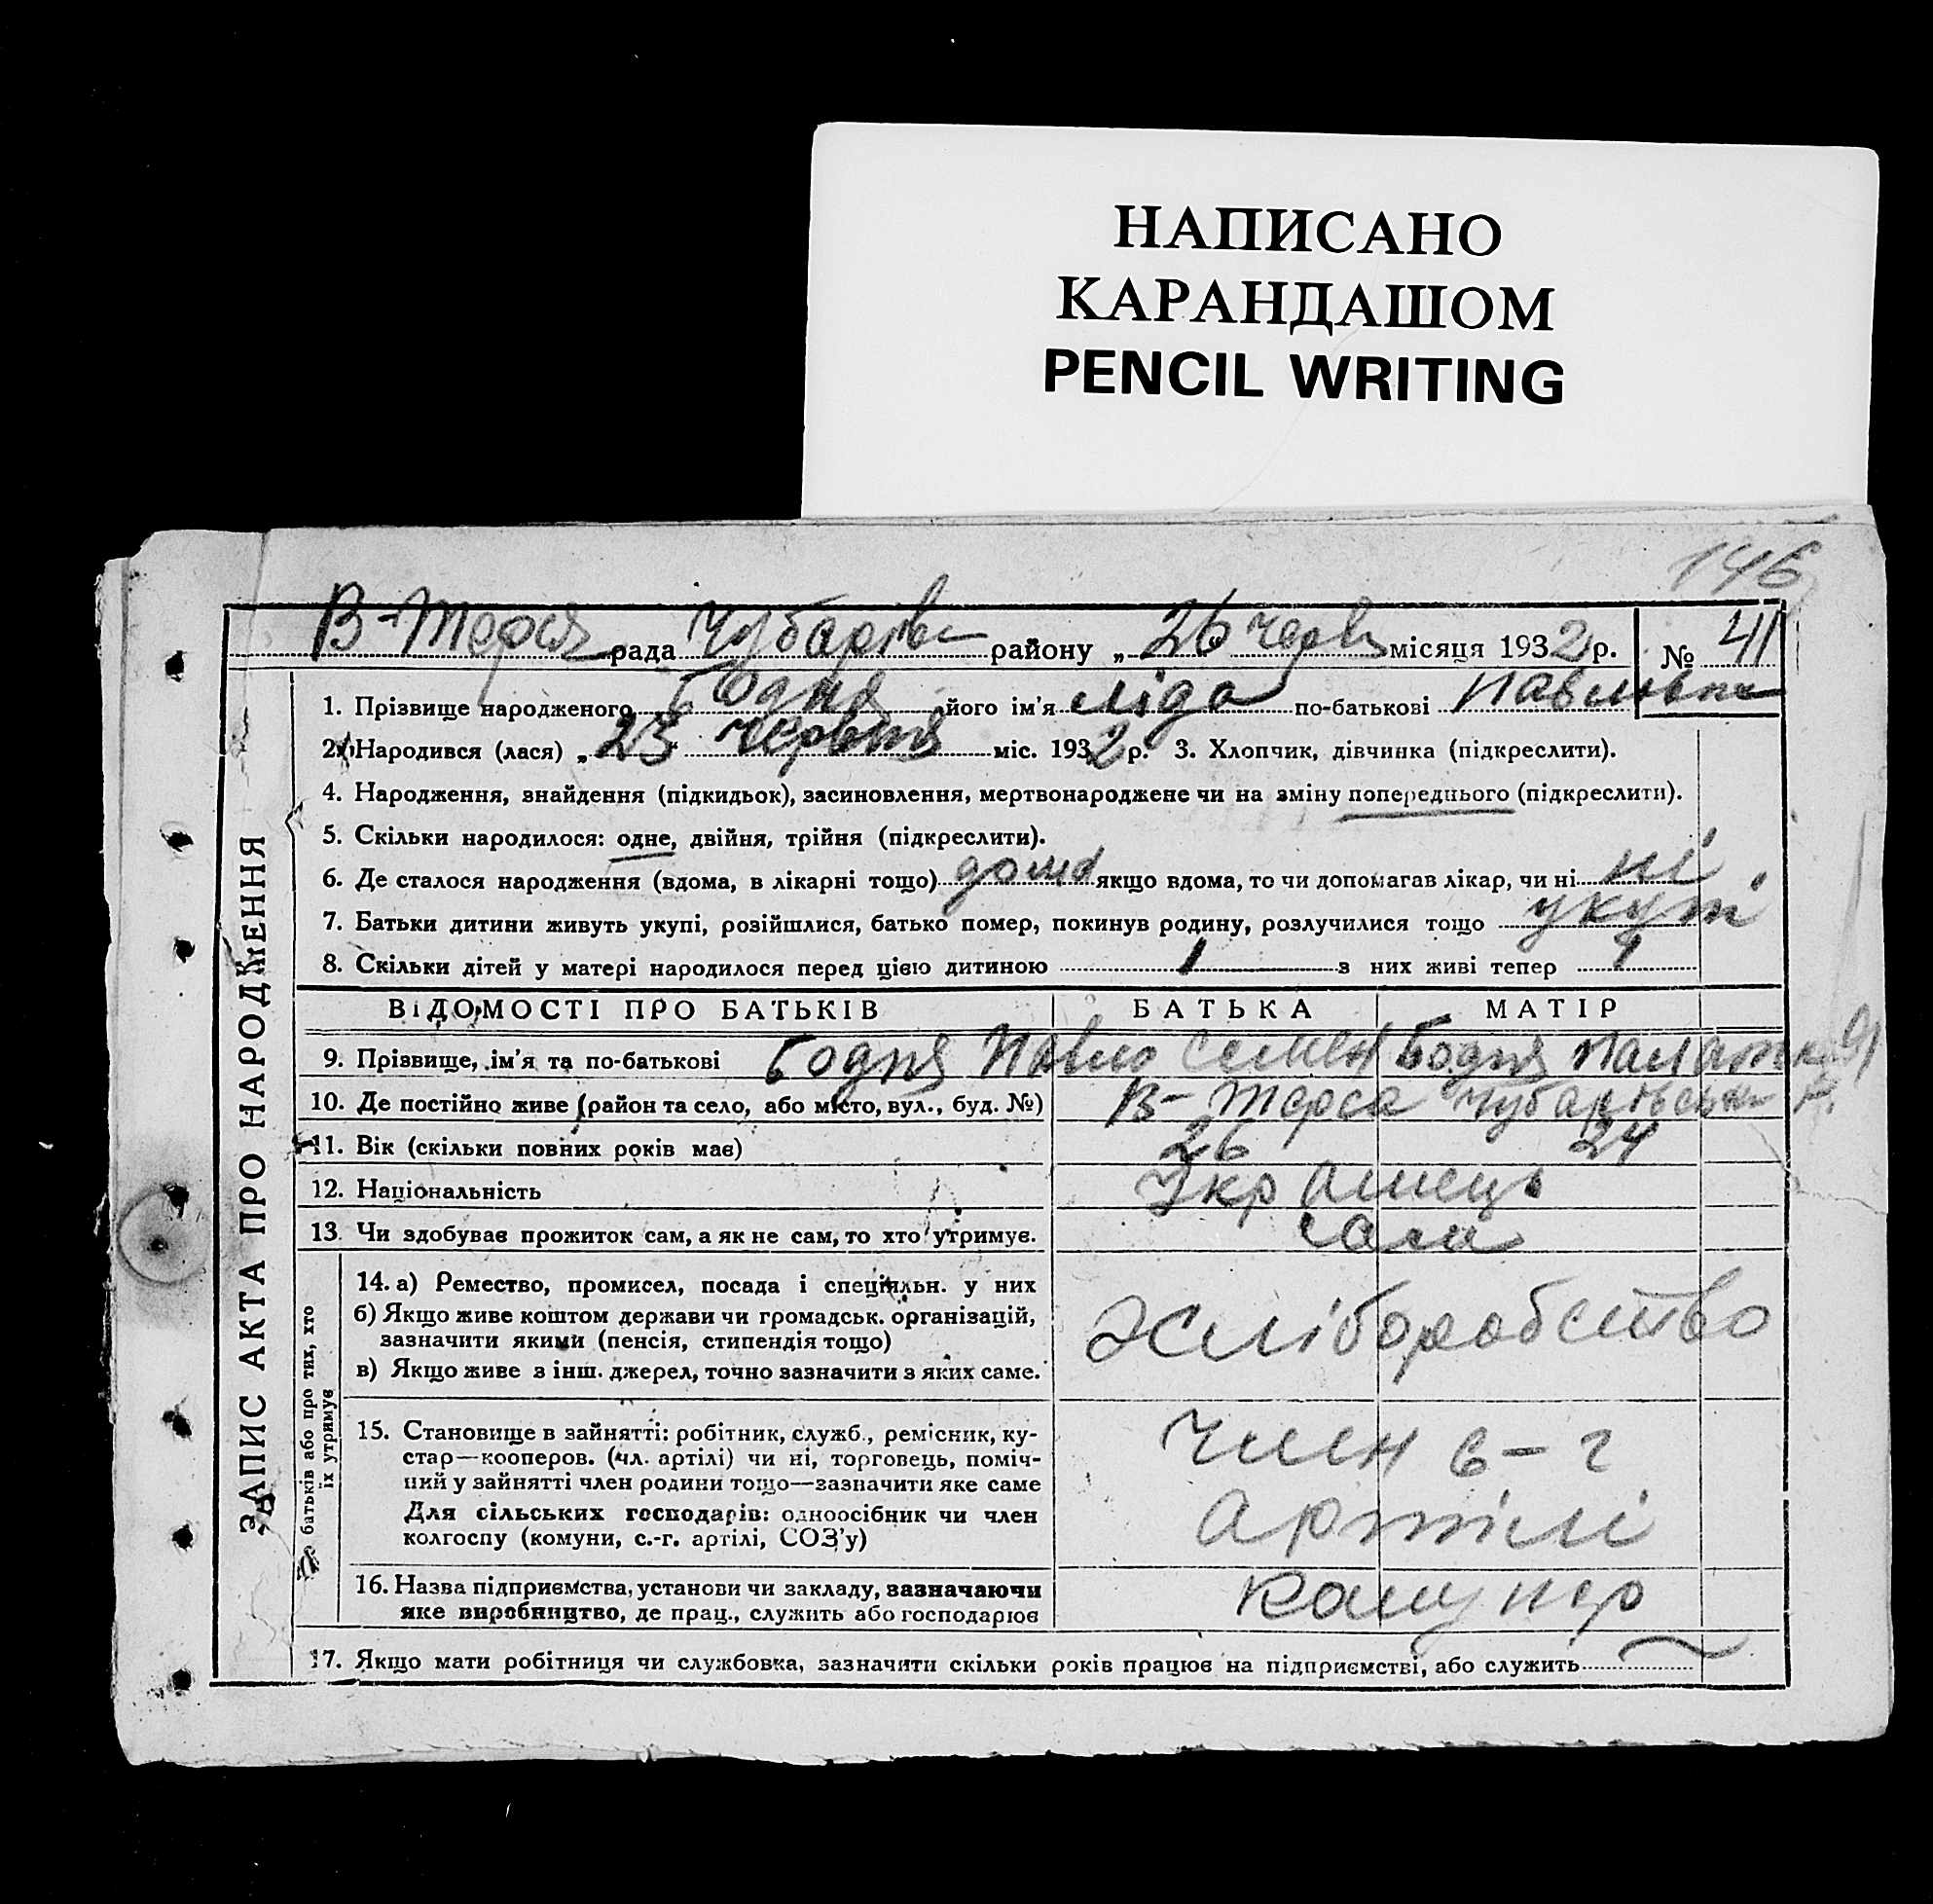 НАПИСАНО
КАРАНДАШОМ
PENCIL WRITING
146
В-Терся рада Чубарівс району „ 26 черв місяця 1932 р. № 41
1. Прізвище народженого Бодня його ім'я Ліда по-батькові Павлівна
2. Народився (лася) „ 23 червня міс. 1932 р. 3. Хлопчик, дівчинка (підкреслити).
4. Народження, знайдення (підкидьок), засиновлення, мертвонароджене чи на зміну попереднього (підкреслити).
5. Скільки народилося: одне, двійня, трійня (підкреслити).
6. Де сталося народження (вдома, в лікарні тощо) дома якщо вдома, то чи допомагав лікар, чи ні ні
7. Батьки дитини живуть укупі, розійшлися, батько помер, покинув родину, розлучилися тощо укупі
8. Скільки дітей у матері народилося перед цією дитиною 1 з них живі тепер 1
ЗАПИС АКТА ПРО НАРОДЖЕННЯ
ВІДОМОСТІ ПРО БАТЬКІВ БАТЬКА МАТІР
9. Прізвище, ім'я та по-батькові Бодня Павло Семен Бодня
10. Де постійно живе (район та село, або місто, вул., буд. №) В-Терса Чубарівськ р.
11. Вік (скільки повних років має) 26 24
12. Національність Українець
13. Чи здобуває прожиток сам, а як не сам, то хто утримує. сами
батьків або про тих, хто
їх утримує
14. а) Ремество, промисел, посада і спеціяльн. у них
б) Якщо живе коштом держави чи громадськ. організацій,
зазначити якими (пенсія, стипендія тощо)
в) Якщо живе з інш. джерел, точно зазначити з яких саме.
хліборобство
15. Становище в зайнятті: робітник, служб., ремісник, ку-
стар—кооперов. (чл. артілі) чи ні, торговець, поміч-
ний у зайнятті член родини тощо—зазначити яке саме
Для сільських господарів: одноосібник чи член
колгоспу (комуни, с.-г. артілі, СОЗ'у)
член с-г
артілі
16. Назва підприємства, установи чи закладу, зазначаючи
яке виробництво, де прац., служить або господарює
Комунер
17. Якщо мати робітниця чи службовка, зазначити скільки років працює на підприємстві, або служить